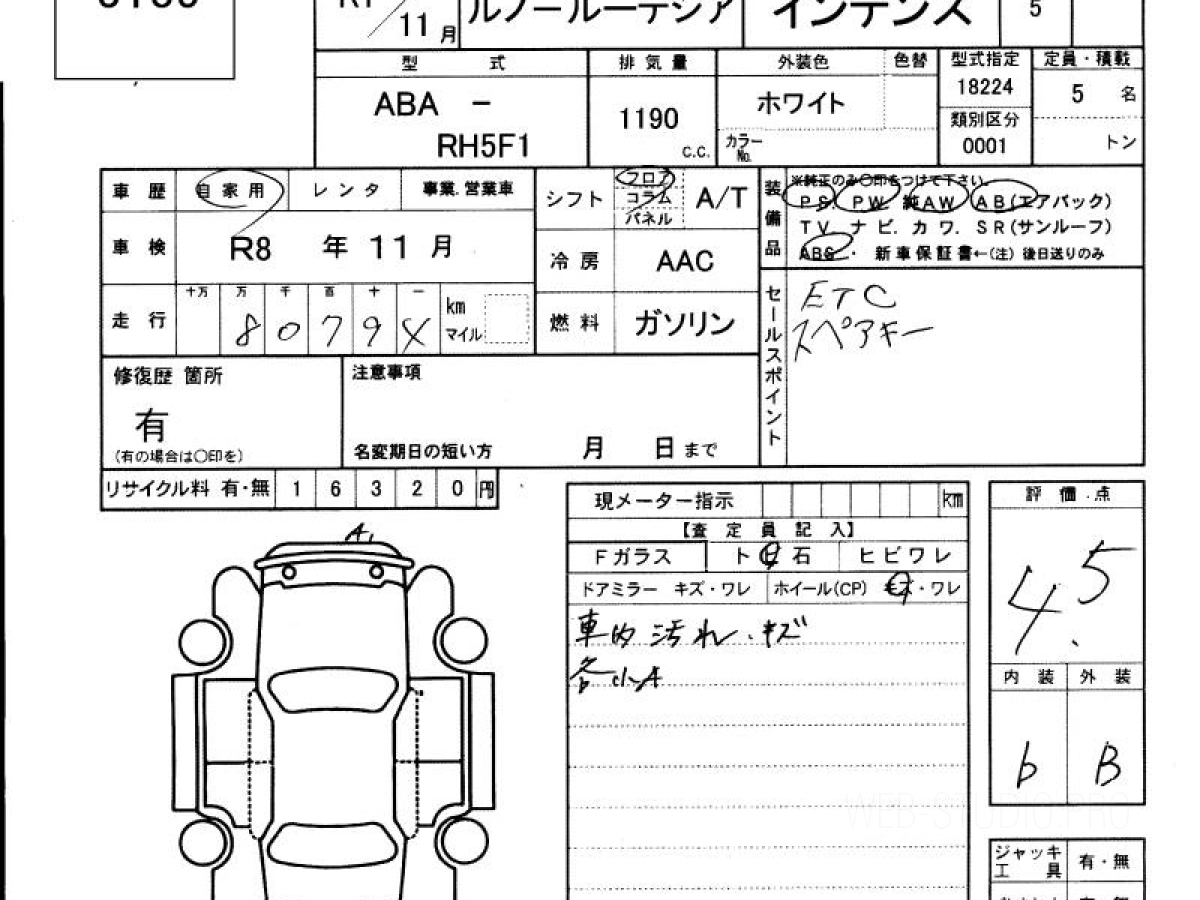 11 月
ルノールーテシア
インテンス
5
型 式
排 気 量
外装色
色替
型式指定
定員・積載
ABA -
RH5F1
1190
C.C.
ホワイト
カラーNo.
18224
類別区分
0001
5 名
トン
車 歴
自 家 用
レ ン タ
事業.営業車
シフト
フロア
コラム
パネル
A/T
装備品
※純正のみ〇印をつけて下さい。
PS PW 純AW AB(エアバック)
TV ナ ビ. カ ワ. SR(サンルーフ)
ABS・ 新車保証書←(注) 後日送りのみ
車 検
R8 年 11 月
冷 房
AAC
走 行
十万 万 千 百 十 一
8 0 7 9 X
km
マイル
燃 料
ガソリン
セールスポイント
ETC
スペアキー
修復歴 箇所
有
(有の場合は〇印を)
注意事項
名変期日の短い方 月 日 まで
リサイクル料 有・無 1 6 3 2 0 円
現メーター指示 km
【査 定 員 記 入】
Fガラス
ト 石
ヒビワレ
ドアミラー キズ・ワレ
ホイール(CP) キズ・ワレ
車内 汚れ・キズ
各小A
A1
評 価 点
4.5
内 装
外 装
b
B
WEB-STUDIO.PRO
ジャッキ
工 具
有・無